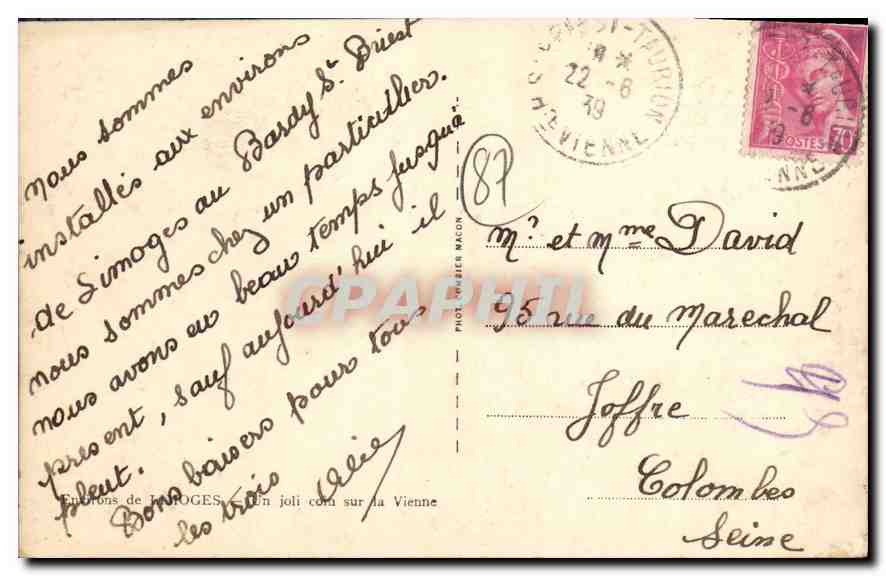 nous sommes
installés aux environs
de Limoges au Bardy St Priest
nous sommes chez un particulier.
nous avons eu beau temps jusqu'à
present, sauf aujourd'hui il
pleut.
Bons baisers pour tous
les trois
Environs de LIMOGES — Un joli coin sur la Vienne
PHOT. COMBIER MACON
CPAPHIL
ST-TAURION
22-8
39
HTE VIENNE
POSTES
70
87
Mr et Mme David
95 rue du Marechal
Joffre
Colombes
Seine